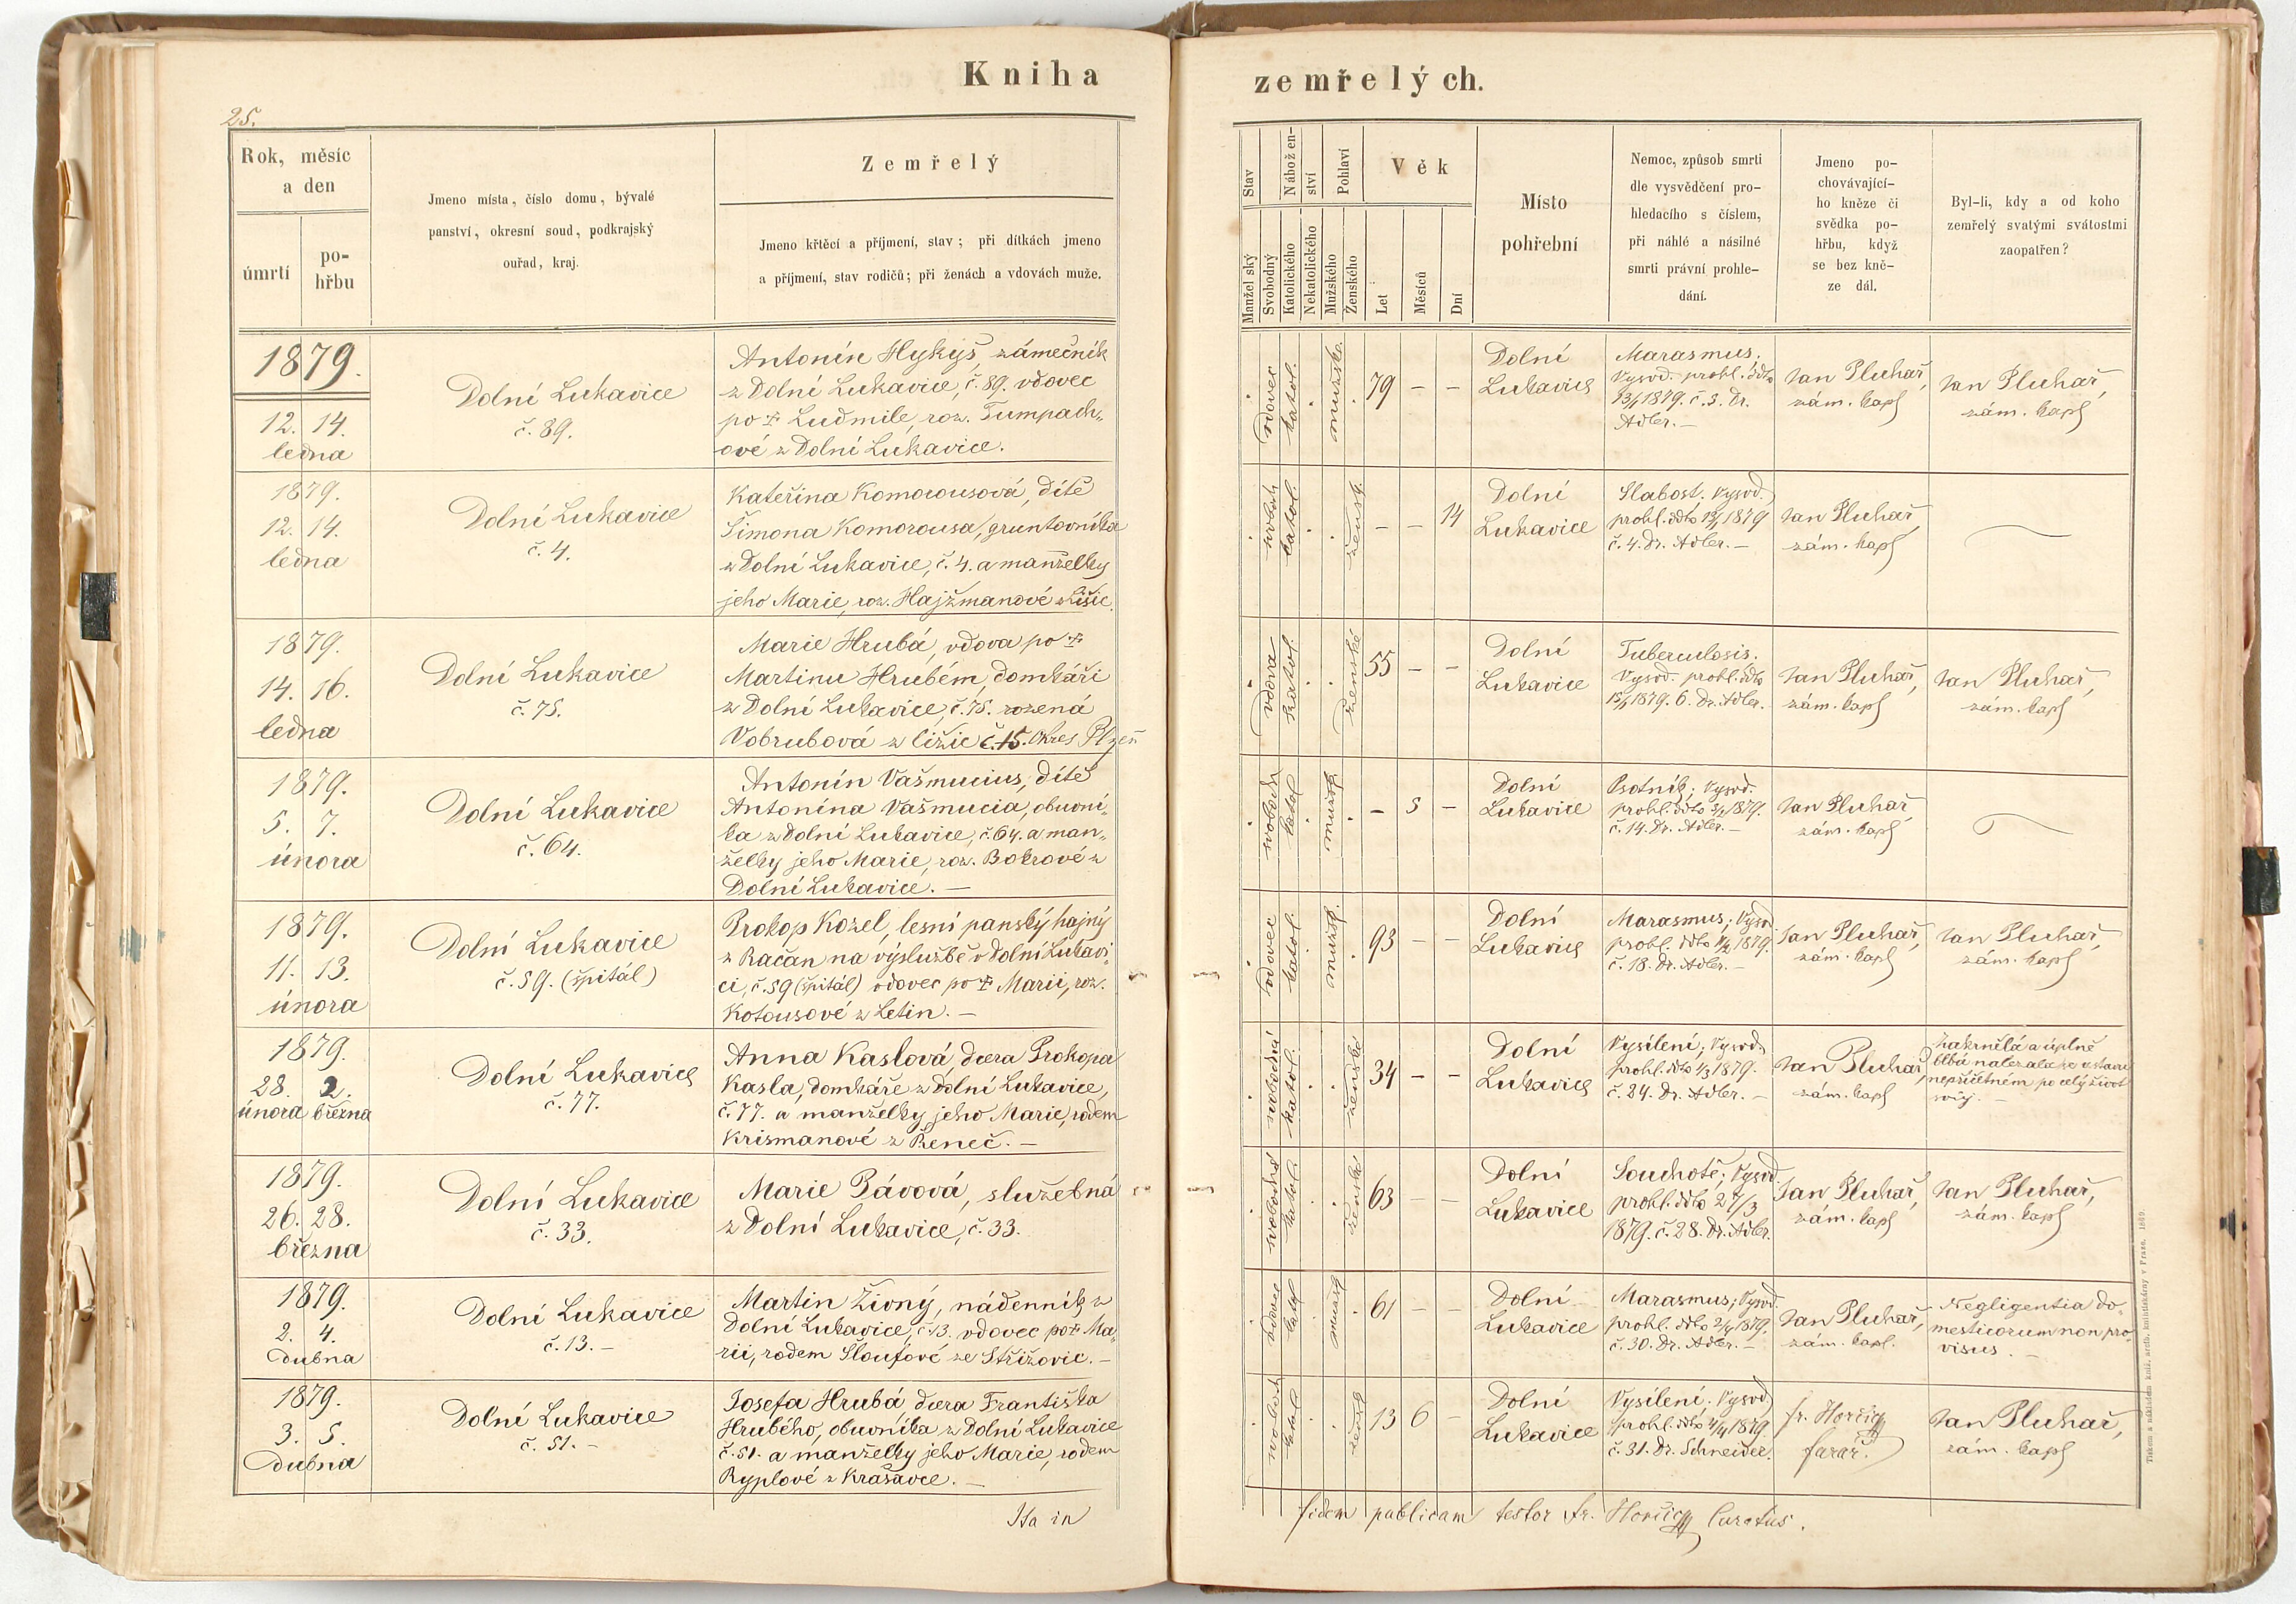 Kniha zemřelých.
25.
Rok, měsíc
a den
úmrtí
po-
hřbu
Jmeno místa, číslo domu, bývalé
panství, okresní soud, podkrajský
ouřad, kraj.
Zemřelý
Jmeno křtěcí a příjmení, stav; při dítkách jmeno
a příjmení, stav rodičů; při ženách a vdovách muže.
Stav
Manželský
Svobodný
Nábožen-
ství
Katolického
Nekatolického
Pohlaví
Mužského
Ženského
Věk
Let
Měsíců
Dní
Místo
pohřební
Nemoc, způsob smrti
dle vysvědčení pro-
hledacího s číslem,
při náhlé a násilné
smrti právní prohle-
dání.
Jmeno po-
chovávající-
ho kněze či
svědka po-
hřbu, když
se bez kně-
ze dál.
Byl-li, kdy a od koho
zemřelý svatými svátostmi
zaopatřen?
1879.
12. 14.
ledna
Dolní Lukavice
č. 89.
Antonín Hykyš, zámečník
z Dolní Lukavice, č. 89. vdovec
po † Ludmile, roz. Tumpach„
ové z Dolní Lukavice.
vdovec
katol.
mužsko.
79 – –
Dolní
Lukavice
Marasmus.
Vysvd. prohl. ddto
13/1 1879. č. 3. Dr.
Adler. –
Jan Pluhař,
zám. kapl
Jan Pluhař,
zám. kapl
1879.
12. 14.
ledna
Dolní Lukavice
č. 4.
Kateřina Komorousová, dítě
Šimona Komorousa, gruntovníka
z Dolní Lukavice, č. 4. a manželky
jeho Marie, roz. Hajžmanové z Lišic.
svobod.
katol.
žensk.
– – 14
Dolní
Lukavice
Slabost. Vysvd.
prohl. ddto 13/1 1879
č. 4. Dr. Adler. –
Jan Pluhař,
zám. kapl
1879.
14. 16.
ledna
Dolní Lukavice
č. 75.
Marie Hrubá, vdova po †
Martinu Hrubém, domkáři
z Dolní Lukavice, č. 75. rozená
Vobrubová z Ližic č. 15. Okres Plzeň
vdova
katol.
ženské
55 – –
Dolní
Lukavice
Tuberculosis.
Vysvd. prohl. ddto
15/1 1879. 6. Dr. Adler.
Jan Pluhař,
zám. kapl
Jan Pluhař,
zám. kapl
1879.
5. 7.
února
Dolní Lukavice
č. 64.
Antonín Vašmucius, dítě
Antonína Vašmucia, obuvní„
ka z Dolní Lukavice, č. 64. a man„
želky jeho Marie, roz. Bokrové z
Dolní Lukavice. –
svobod.
katol
mužsk
– 5 –
Dolní
Lukavice
Psotník; Vysvd.
prohl. ddto 5/2 1879.
č. 14. Dr. Adler. –
Jan Pluhař
zám. kapl
1879.
11. 13.
února
Dolní Lukavice
č. 59. (špitál)
Prokop Kozel, lesní panský hajný
z Račan na výslužbě v Dolní Lukavi„
ci, č. 59 (špitál) vdovec po † Marii, roz.
Kotousové z Letin. –
vdovec
katol.
mužsk.
93 – –
Dolní
Lukavice
Marasmus; Vysvd
prohl. ddto 11/2 1879.
č. 18. Dr. Adler. –
Jan Pluhař,
zám. kapl
Jan Pluhař,
zám. kapl
1879.
28. 2.
února března
Dolní Lukavice
č. 77.
Anna Kaslová, dcera Prokopa
Kasla, domkáře z Dolní Lukavice,
č. 77. a manželky jeho Marie, rodem
Krismanové z Řeneč. –
svobodná
katol.
ženské
34 – –
Dolní
Lukavice
Vysílení; Vysvd.
prohl. ddto 1/3 1879.
č. 24. Dr. Adler. –
Jan Pluhař,
zám. kapl
Zakrnělá a úplně
blbá nalezala se v stavu
nepříčetném po celý život
svůj. –
1879.
26. 28.
března
Dolní Lukavice
č. 33.
Marie Pávová, služebná
z Dolní Lukavice, č. 33.
svobodná
katol.
ženské
63 – –
Dolní
Lukavice
Souchotě; Vysvd
prohl. ddto 27/3
1879. č. 28. Dr. Adler.
Jan Pluhař,
zám. kapl
Jan Pluhař,
zám. kapl
1879.
2. 4.
dubna
Dolní Lukavice
č. 13. –
Martin Živný, nádenník z
Dolní Lukavice, č. 13. vdovec po † Ma„
rii, rodem Sloufové ze Střížovic. –
vdovec
mužsk
61 – –
Dolní
Lukavice
Marasmus; Vysvd.
prohl. ddto 2/4 1879.
č. 30. Dr. Adler. –
Jan Pluhař,
zám. kapl.
Negligentia do„
mesticorum non pro„
visus. –
1879.
3. 5.
dubna
Dolní Lukavice
č. 51. –
Josefa Hrubá dcera Františka
Hrubého, obuvníka z Dolní Lukavice
č. 51. a manželky jeho Marie, rodem
Ryplové z Krašavce. –
svobod.
katol
žensk
13 6 –
Dolní
Lukavice
Vysílení. Vysvd
prohl. ddto 4/4 1879.
č. 31. Dr. Schneider.
fr. Horčic
farář.
Jan Pluhař,
zám. kapl
Ita in
fidem publicam testor fr. Horčic Curatus.
Tiskem a nákladem kníž. arcib. knihtiskárny v Praze. 1869.